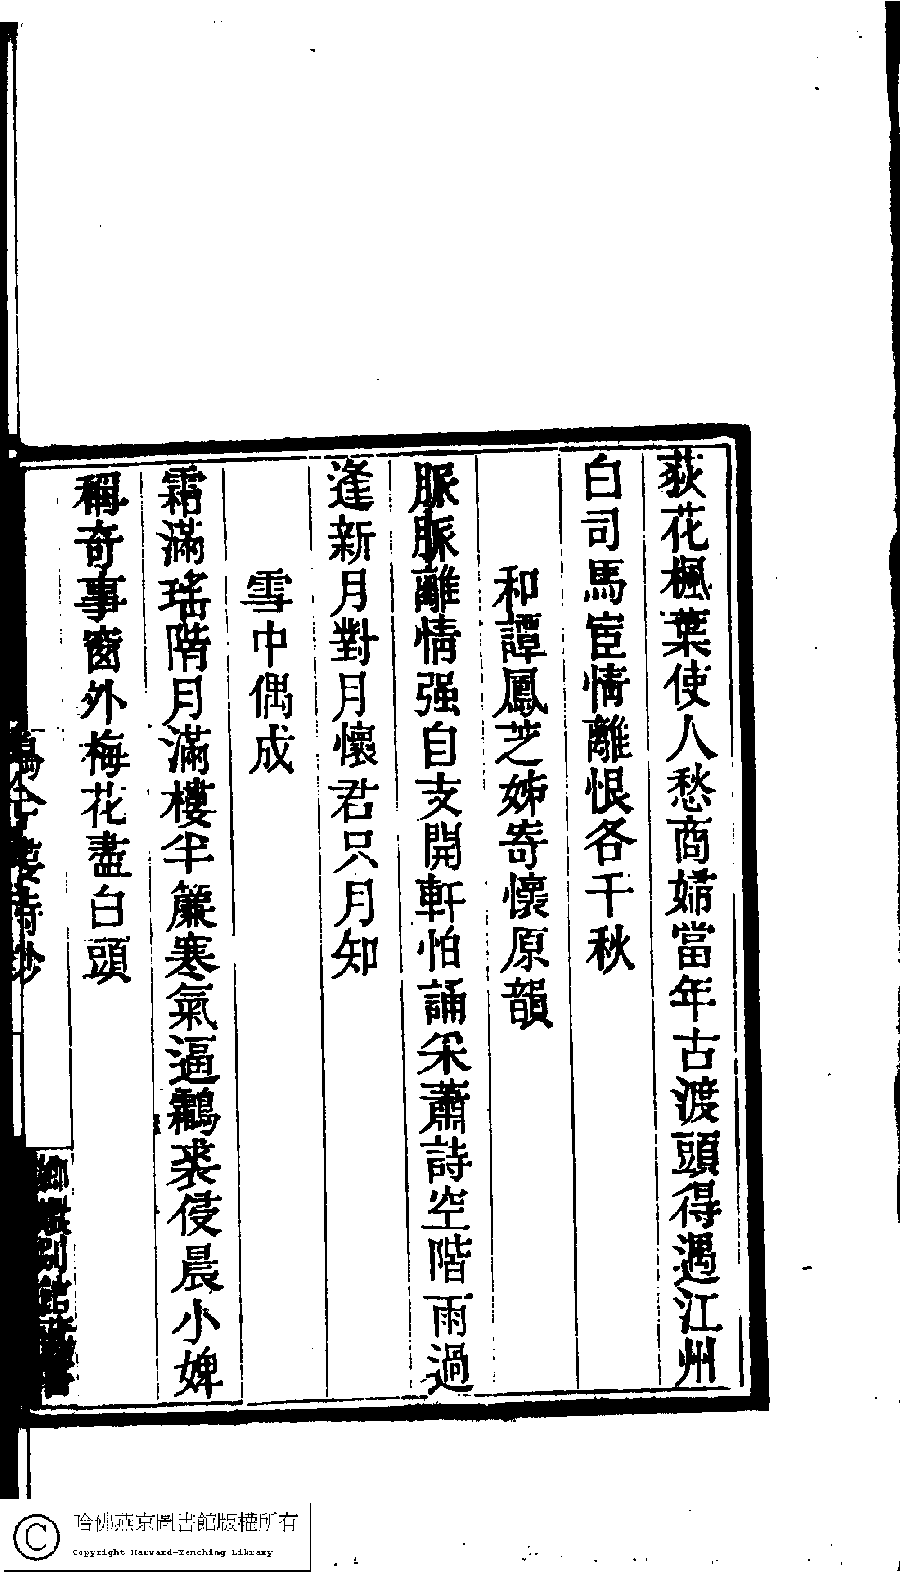 荻花楓葉使人愁商婦當年古渡頭得遇江州
白司馬宦情離恨各千秋
和譚鳳芝姊寄懷原韻
脈脈離情强自支開軒怕誦采蕭詩空階雨過
逢新月對月懷君只月知
雪中偶成
霜滿瑤階月滿樓半簾寒氣逼鸘裘侵晨小婢
稱奇事窗外梅花盡白頭
樓詩鈔
哈佛燕京圖書館版權所有
Copyright Harvard-Yenching Library